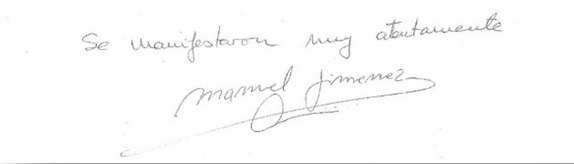 Se manifestaron muy atentamente
Manuel Jimenez